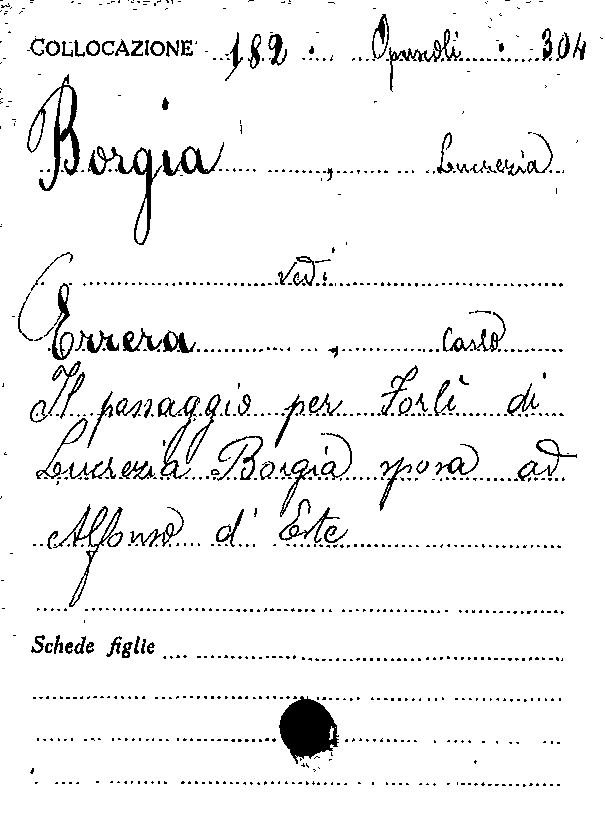 COLLOCAZIONE 182 . Opuscoli . 304
Borgia , Lucrezia
vedi
Errera , Carlo
Il passaggio per Forlì di
Lucrezia Borgia sposa ad
Alfonso d' Este
Schede figlie